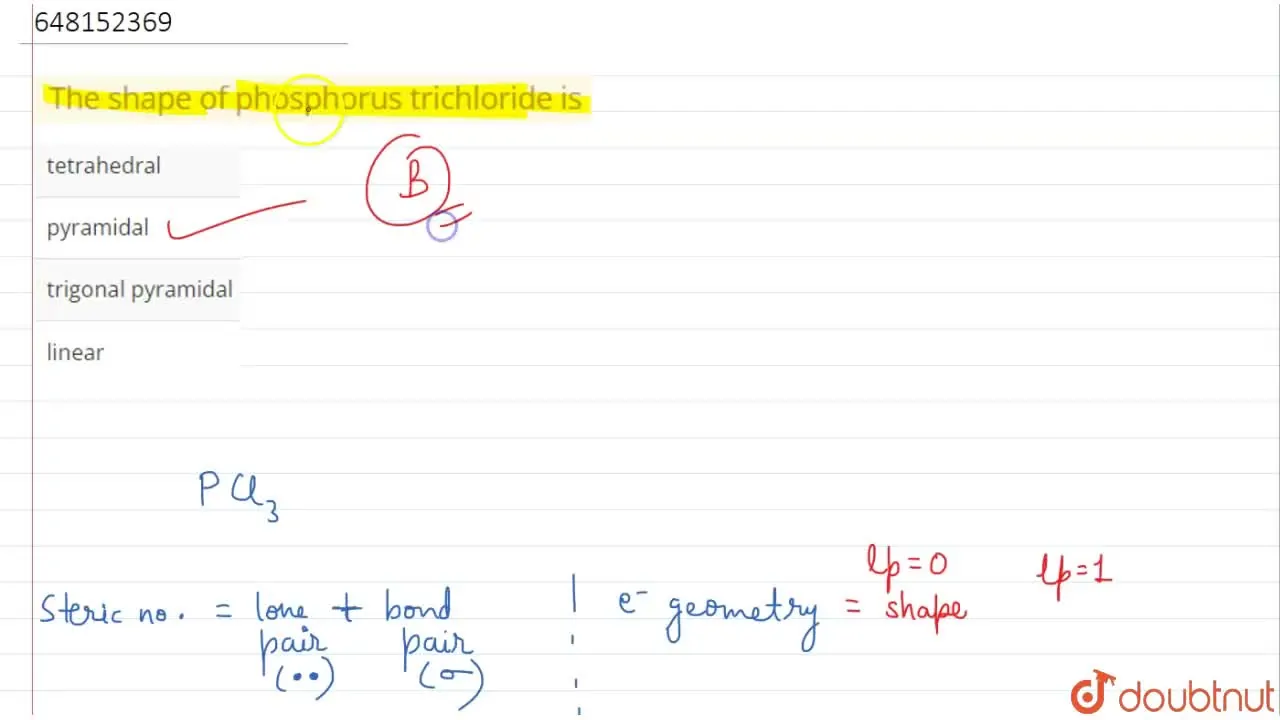 648152369
The shape of phosphorus trichloride is
tetrahedral
B
pyramidal
trigonal pyramidal
linear
PCl3
lp=0 lp=1
Steric no. = lone + bond e- geometry = shape
pair pair
(••) (σ)
doubtnut